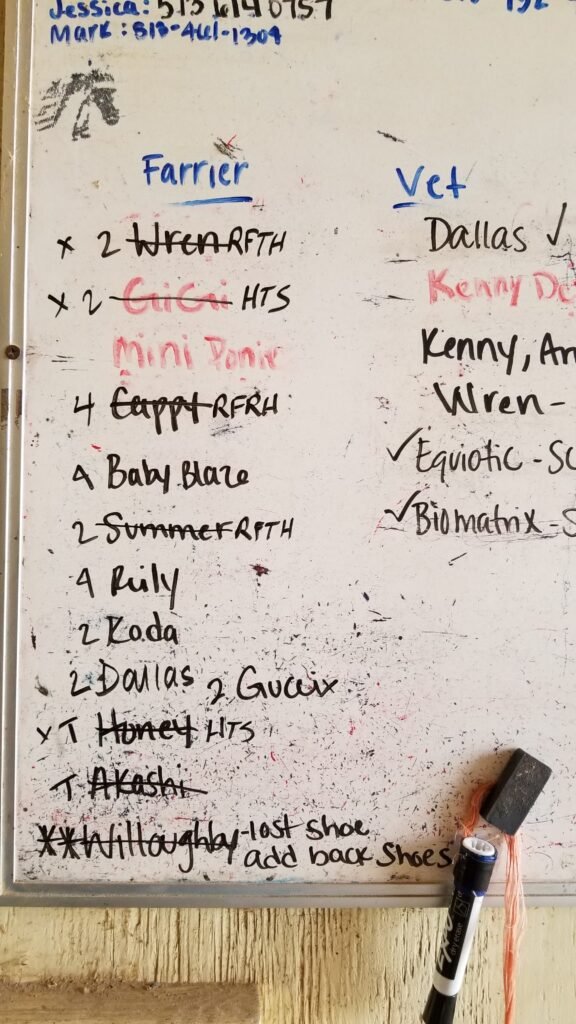 Jessica: 513 614 0757
Mark: 513-461-1304
Farrier
x 2 Wren RFTH
x 2 GiGi HTS
Mini Ponie
4 Cappy RFRH
4 Baby Blaze
2 Summer RFTH
4 Reily
2 Koda
2 Dallas 2 Guccix
x T Honey HTS
T Akashi
**Willoughby - lost shoe
add back shoes
Vet
Dallas ✓
Kenny
Kenny, An
Wren -
✓ Equiotic - Sc
✓ Biomatrix - S
EXPO
dry erase